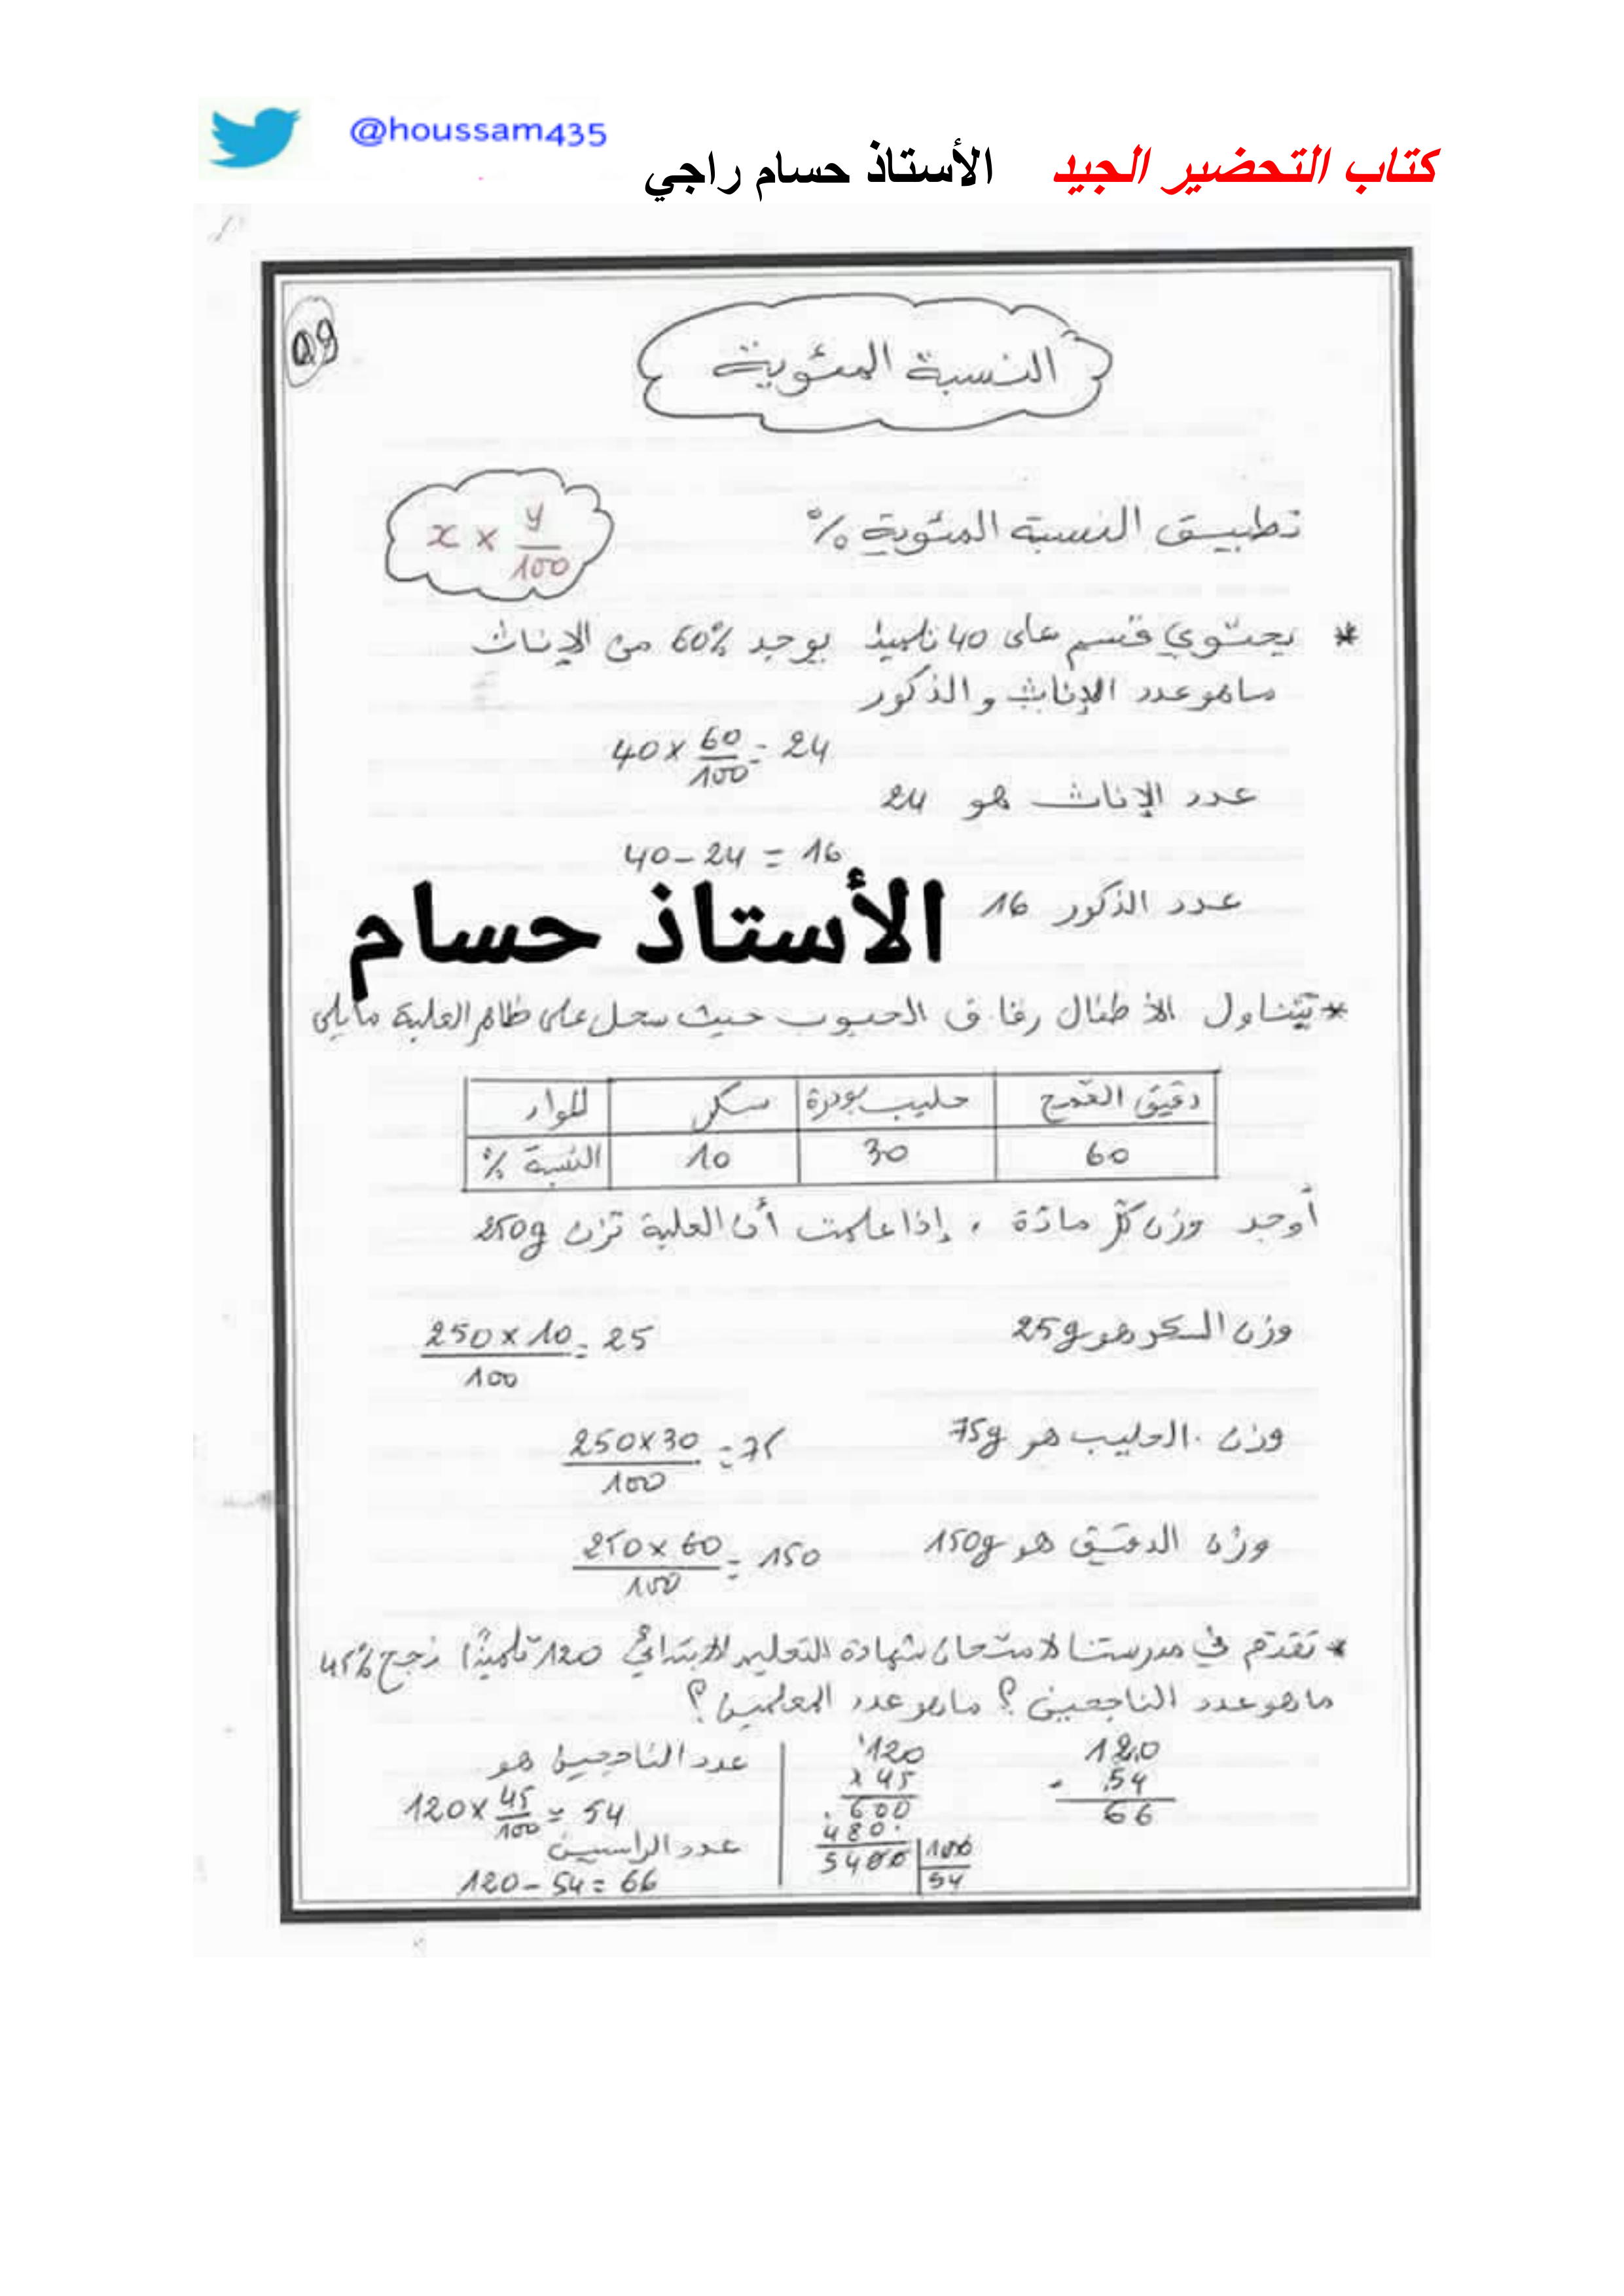 @houssam435
كتاب التحضير الجيد الأستاذ حسام راجي
09
النسبة المئوية
تطبيق النسبة المئوية %
x × y/100
* يحتوي قسم على 40 تلميذ يوجد 60% من الإناث
ماهو عدد الإناث و الذكور
40 × 60/100 = 24
عدد الإناث هو 24
40 - 24 = 16
عدد الذكور 16
الأستاذ حسام
* يتناول الأطفال رقائق الحبوب حيث سجل على ظاهر العلبة مايلي
المواد سكر حليب بودرة دقيق القمح
النسبة % 10 30 60
أوجد وزن كل مادة ، إذا علمت أن العلبة تزن 250g
وزن السكر هو 25g 250 × 10/100 = 25
وزن الحليب هو 75g 250 × 30/100 = 75
وزن الدقيق هو 150g 250 × 60/100 = 150
* تقدم في مدرستنا لامتحان شهادة التعليم الابتدائي 120 تلميذا نجح 45%
ماهو عدد الناجحين ؟ ماهو عدد المعلمين ؟
عدد الناجحين هو
120 × 45/100 = 54
عدد الراسبين
120 - 54 = 66
120
× 45
600
480.
5400 100
54
120
- 54
66